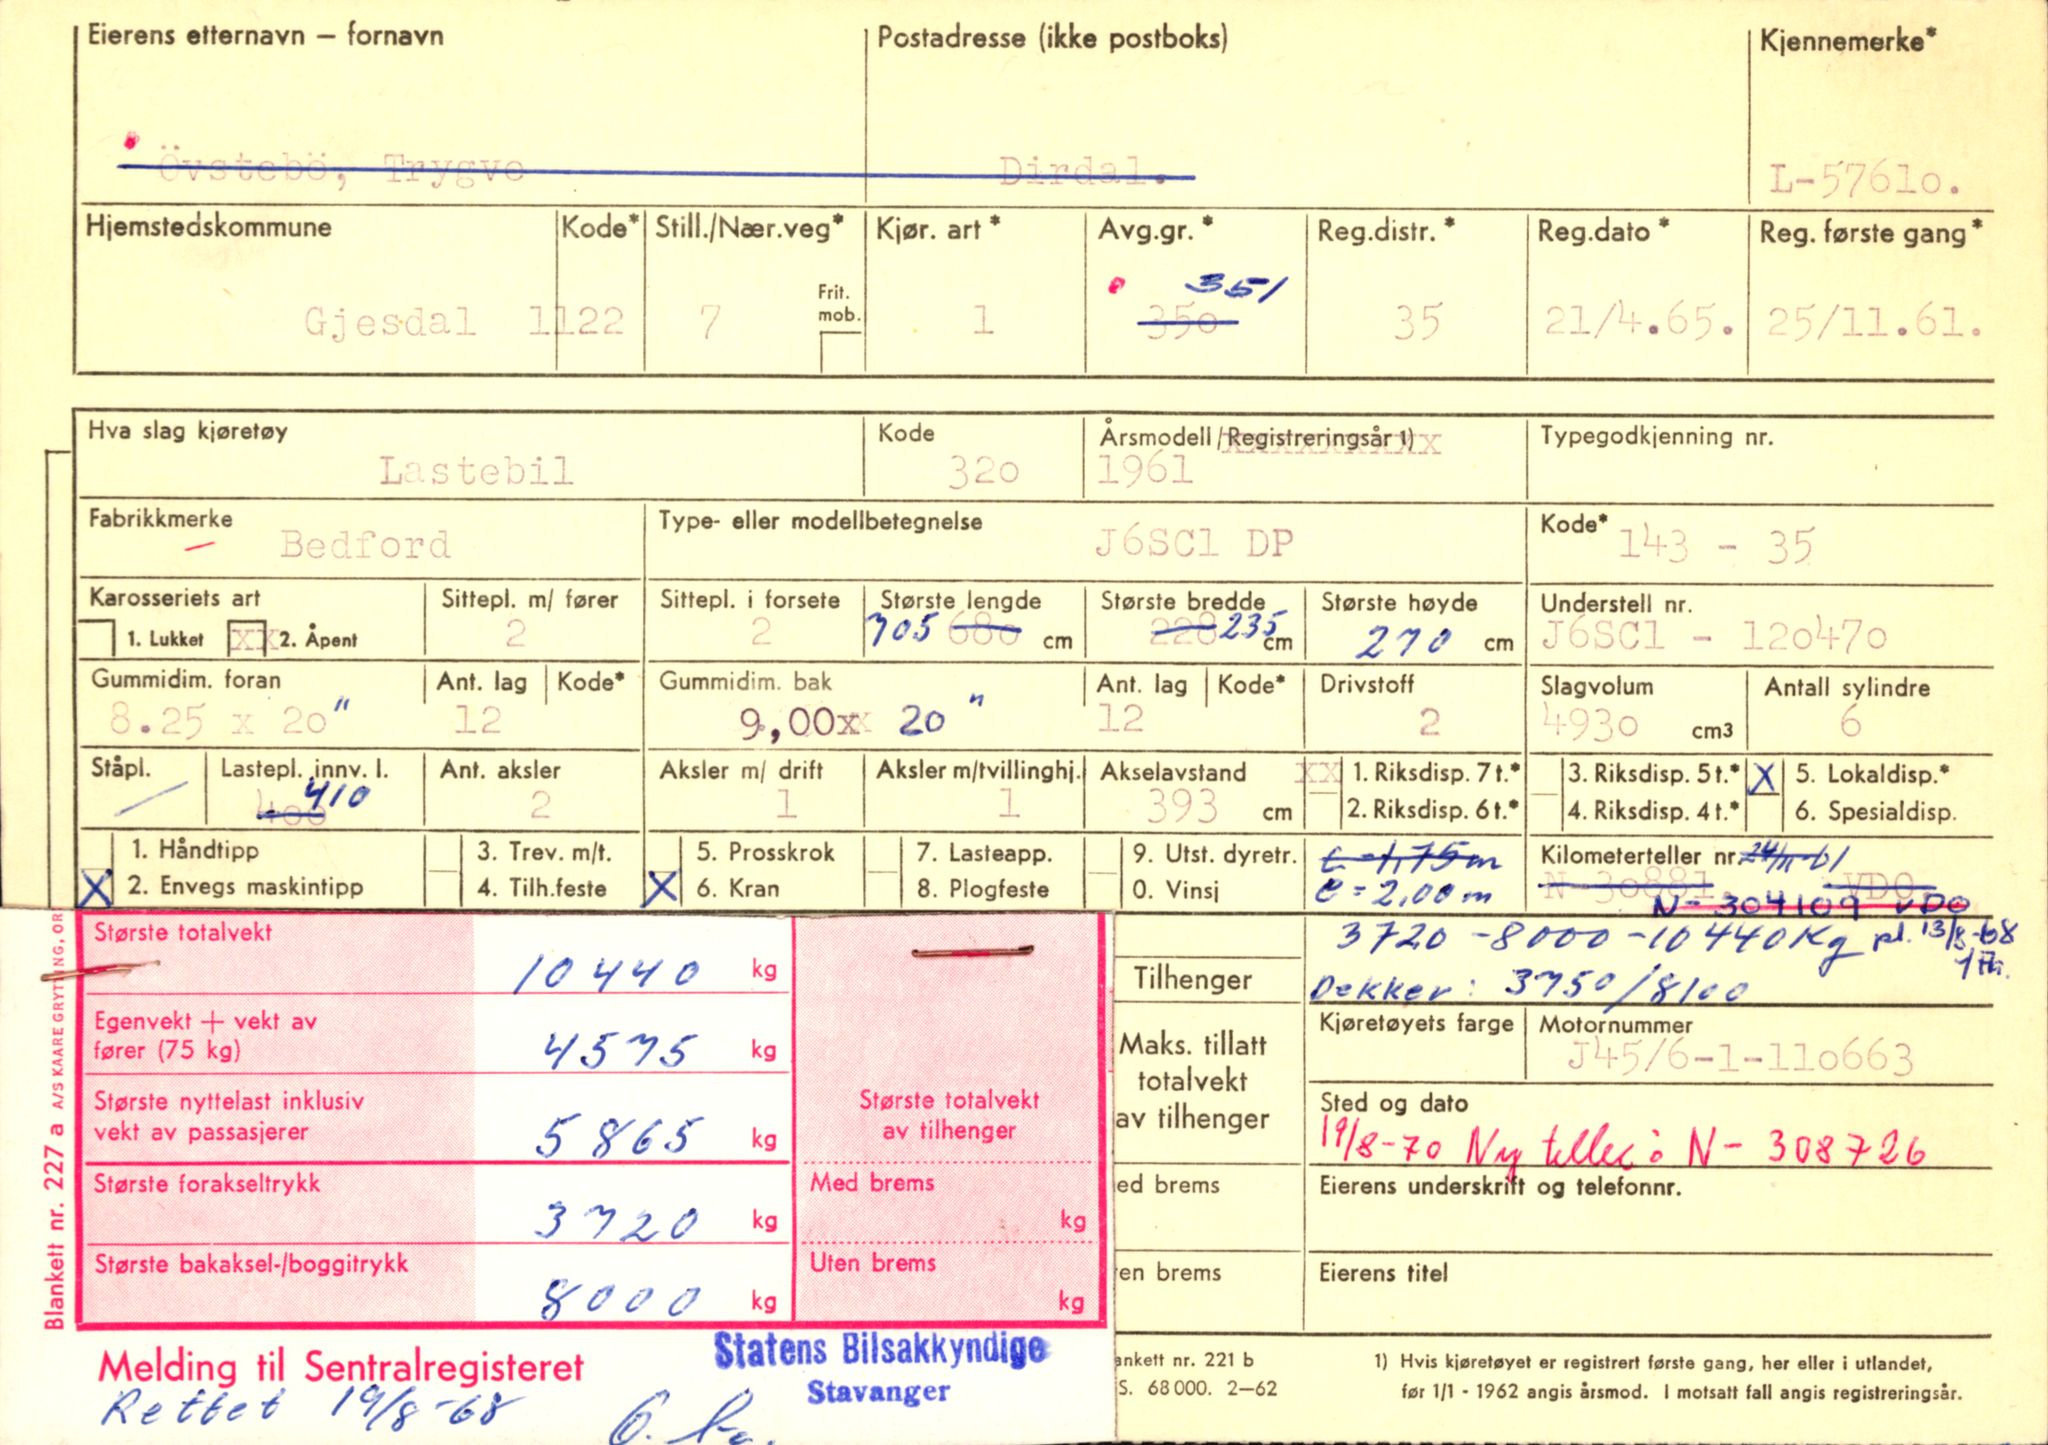 Eierens etternavn – fornavn
Postadresse (ikke postboks)
Kjennemerke*
Övstebö, Trygve
Dirdal.
L-57610.
Hjemstedskommune
Kode*
Still./Nær.veg*
Kjør. art*
Avg.gr.*
Reg.distr.*
Reg.dato*
Reg. første gang*
Gjesdal 1122
7
Frit. mob.
1
350 351
35
21/4.65.
25/11.61.
Hva slag kjøretøy
Kode
Årsmodell/Registreringsår 1)
Typegodkjenning nr.
Lastebil
320
1961
Fabrikkmerke
Bedford
Type- eller modellbetegnelse
J6SC1 DP
Kode* 143 - 35
Karosseriets art
Sittepl. m/ fører
Sittepl. i forsete
Største lengde
Største bredde
Største høyde
Understell nr.
1. Lukket xx 2. Åpent
2
2
705 680 cm
228 235 cm
270 cm
J6SC1 - 120470
Gummidim. foran
Ant. lag
Kode*
Gummidim. bak
Ant. lag
Kode*
Drivstoff
Slagvolum
Antall sylindre
8.25 x 20"
12
9,00xx 20"
12
2
4930 cm3
6
Ståpl.
Lastepl. innv. l.
Ant. aksler
Aksler m/ drift
Aksler m/tvillinghj.
Akselavstand
xx 1. Riksdisp. 7 t.*
3. Riksdisp. 5 t.*
X 5. Lokaldisp.*
400 410
2
1
1
393 cm
2. Riksdisp. 6 t.*
4. Riksdisp. 4 t.*
6. Spesialdisp.
1. Håndtipp
3. Trev. m/t.
5. Prosskrok
7. Lasteapp.
9. Utst. dyretr.
c = 1,75 m
Kilometerteller nr. 24/11-61
X 2. Envegs maskintipp
4. Tilh.feste
X 6. Kran
8. Plogfeste
0. Vinsj
c = 2,00 m
N-30881. VDO
N-304109 VDO
Største totalvekt
10440 kg
3720 - 8000 - 10440 Kg pl. 13/8-68
Tilhenger
Dekker: 3750/8100
Egenvekt + vekt av
fører (75 kg)
4575 kg
Maks. tillatt
totalvekt
av tilhenger
Kjøretøyets farge
Motornummer
J45/6-1-110663
Største nyttelast inklusiv
vekt av passasjerer
5865 kg
Største totalvekt
av tilhenger
Sted og dato
19/8-70 Ny teller: N-308726
Største forakseltrykk
3720 kg
Med brems
kg
ed brems
Eierens underskrift og telefonnr.
Største bakaksel-/boggitrykk
8000 kg
Uten brems
kg
en brems
Eierens titel
Blankett nr. 227 a A/S KAARE GRYTTING, OR
Melding til Sentralregisteret
Statens Bilsakkyndige
Stavanger
Rettet 19/8-68
ankett nr. 221 b
S. 68 000. 2–62
1) Hvis kjøretøyet er registrert første gang, her eller i utlandet,
før 1/1 - 1962 angis årsmod. I motsatt fall angis registreringsår.